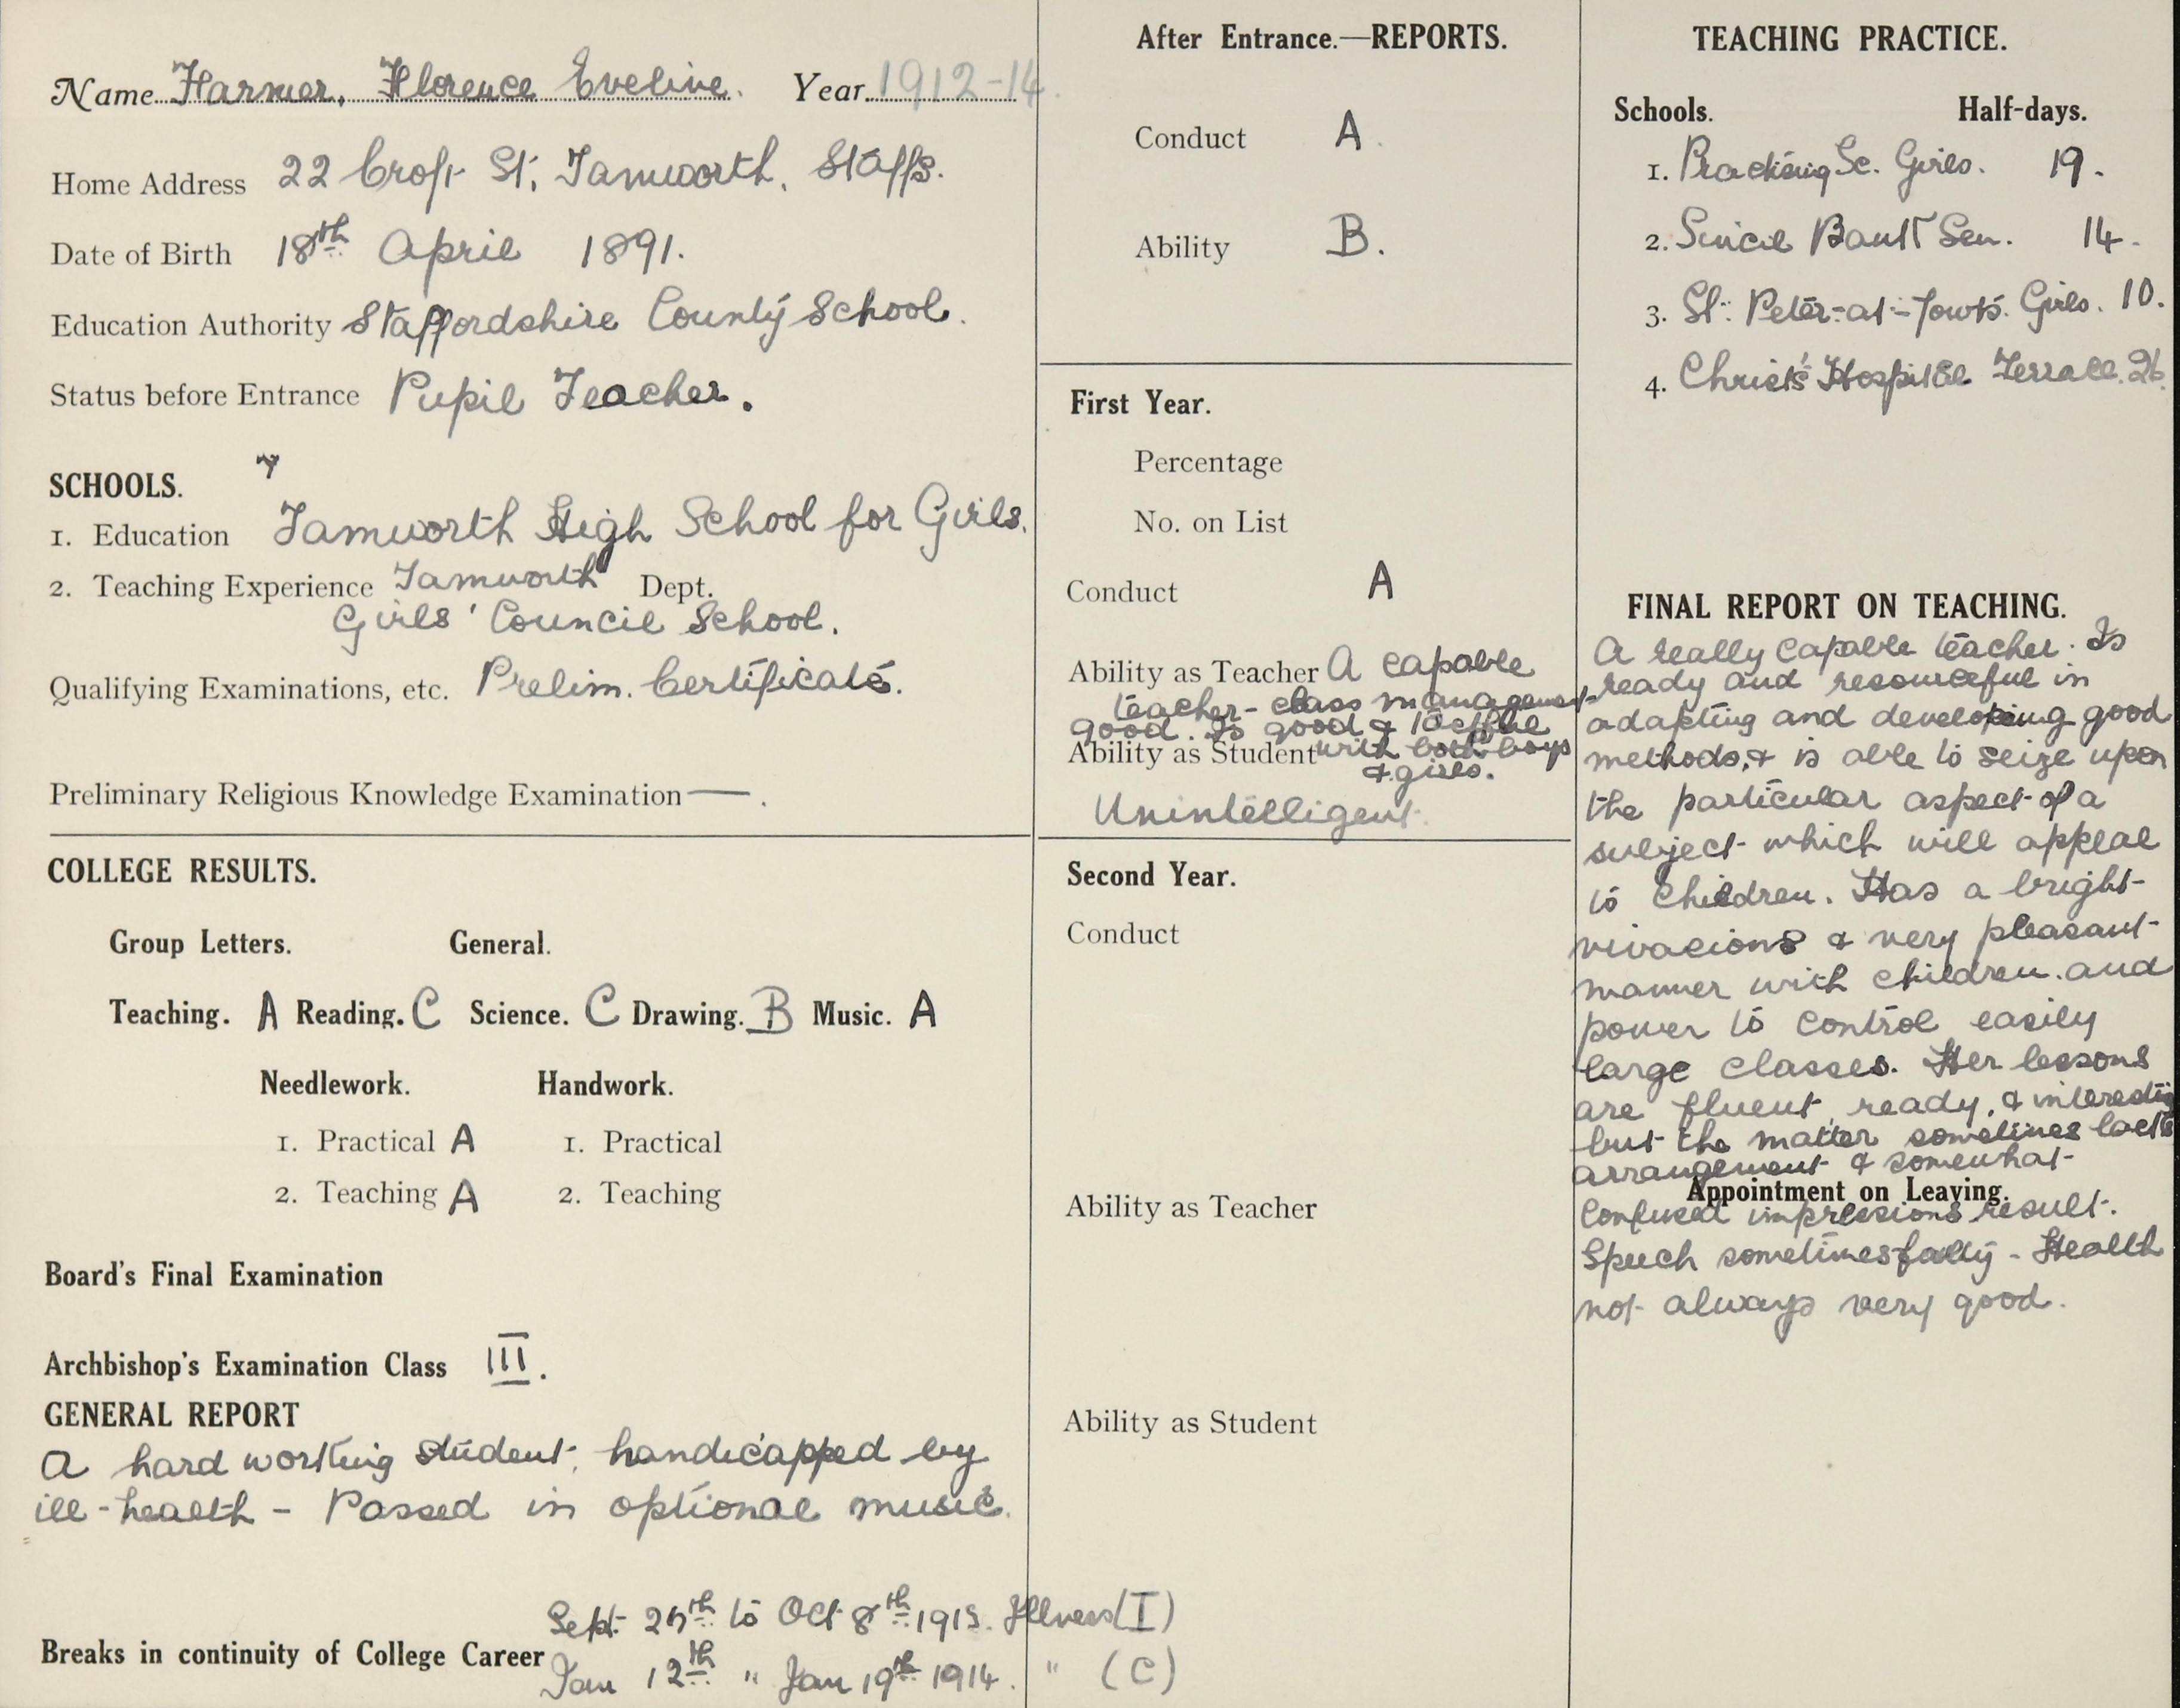 Name Harmer, Florence Eveline. Year 1912-14.
Home Address 22 Croft St, Tamworth, Staffs.
Date of Birth 18th April 1891.
Education Authority Staffordshire County School.
Status before Entrance Pupil Teacher.
SCHOOLS.
1. Education Tamworth High School for Girls.
2. Teaching Experience Tamworth Dept.
Girls' Council School.
Qualifying Examinations, etc. Prelim. Certificate.
Preliminary Religious Knowledge Examination — .
COLLEGE RESULTS.
Group Letters. General.
Teaching. A Reading. C Science. C Drawing. B Music. A
Needlework. Handwork.
1. Practical A 1. Practical
2. Teaching A 2. Teaching
Board's Final Examination
Archbishop's Examination Class III.
GENERAL REPORT
A hard working student, handicapped by
ill-health - Passed in optional music.
Sept. to Oct 8th 1913. Illness (I)
Breaks in continuity of College Career
Jan 12th " Jan 19th 1914. " (C)
After Entrance.—REPORTS.
Conduct A.
Ability B.
First Year.
Percentage
No. on List
Conduct A
Ability as Teacher A capable
teacher - class management
good. Is good & tactful
Ability as Student with both boys
& girls.
Unintelligent.
Second Year.
Conduct
Ability as Teacher
Ability as Student
TEACHING PRACTICE.
Schools. Half-days.
1. Practising Sc. Girls. 19.
2. Sincil Bank Sen. 14.
3. St. Peter-at-Gowts. Girls. 10.
4. Christ's Hospital Terrace. 26.
FINAL REPORT ON TEACHING.
A really capable teacher. Is
ready and resourceful in
adapting and developing good
methods, & is able to seize upon
the particular aspect of a
subject which will appeal
to children. Has a bright
vivacious & very pleasant
manner with children. and
power to control easily
large classes. Her lessons
are fluent, ready, & interesting
but the matter sometimes lacks
arrangement & somewhat
Appointment on Leaving.
confused impressions result.
Speech sometimes faulty - Health
not always very good.